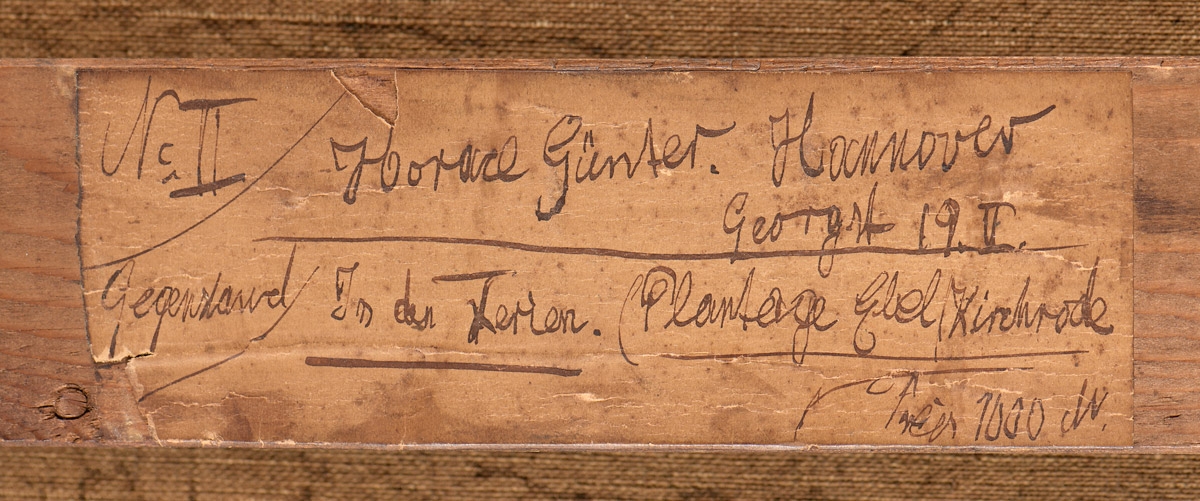 No II Horace Günter. Hannover
Georgst 19. II.
Gegenstand In den Ferien. (Plantage Ebel) Kirchrode
Preis 1000 M.